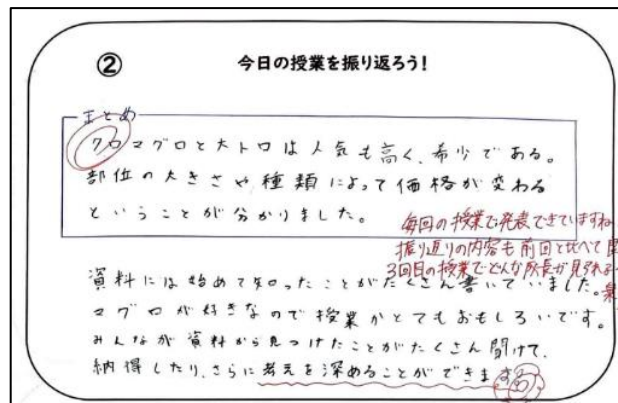 ②
今日の授業を振り返ろう!
まとめ
クロマグロと大トロは人気も高く、希少である。
部位の大きさや種類によって価格が変わる
ということが分かりました。
毎回の授業で発表できていますね
振り返りの内容も前回と比べて
3回目の授業でどんな成長が見られる
資料には始めて知ったことがたくさん書いていました。
マグロが好きなので授業がとてもおもしろいです。
みんなが資料から見つけたことがたくさん聞けて、
納得したり、さらに考えを深めることができます